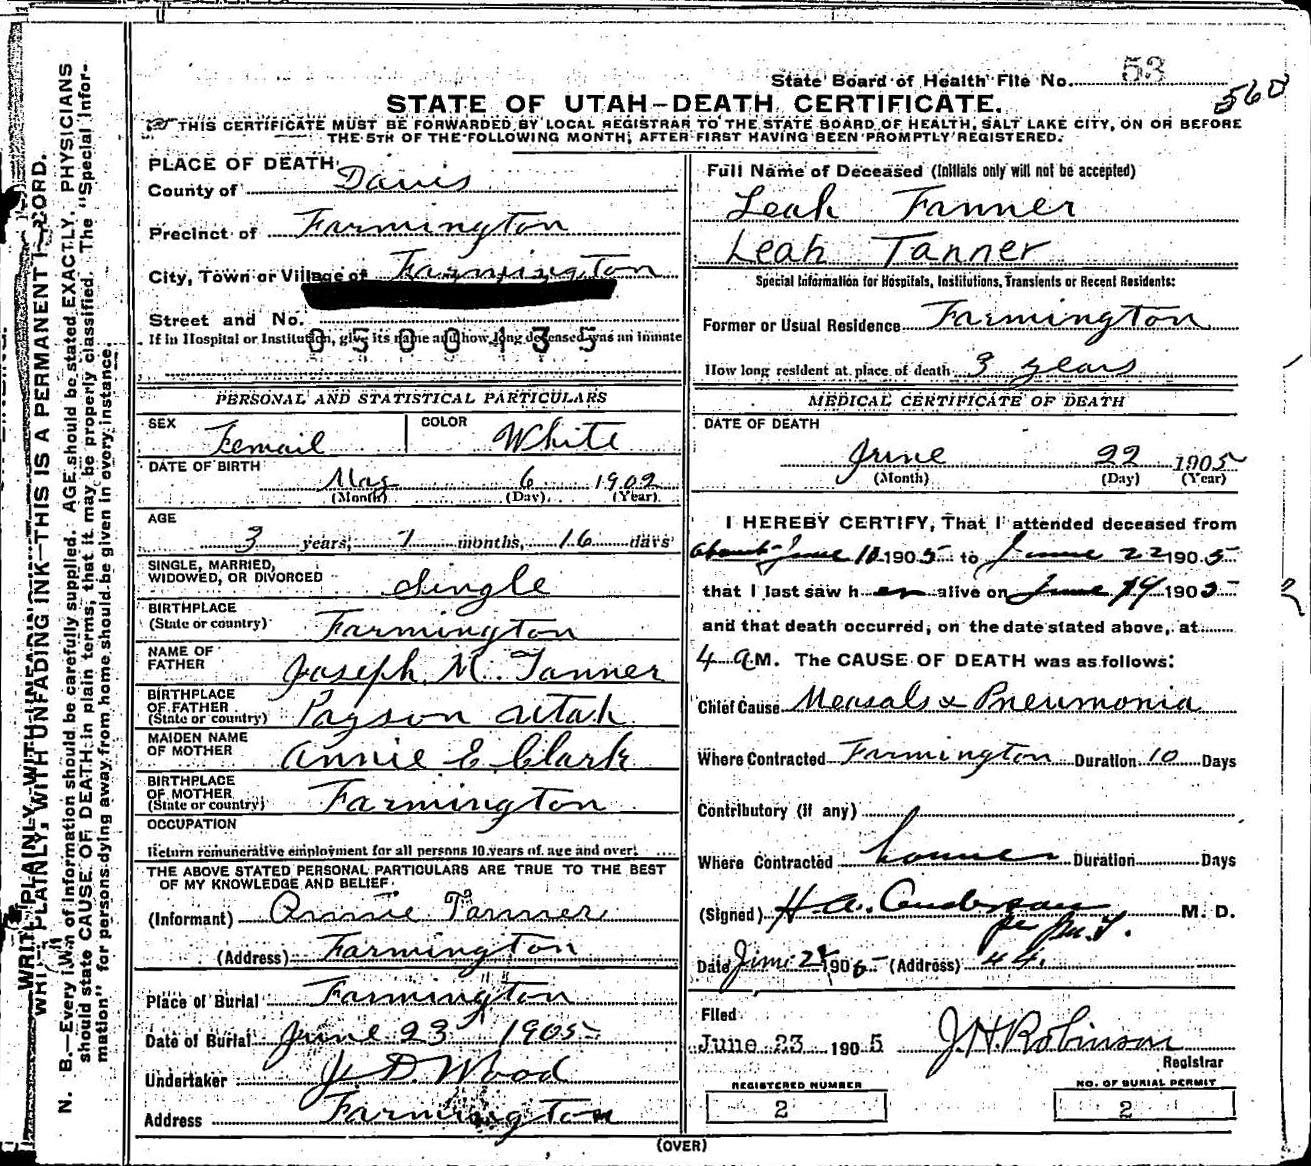 State Board of Health File No. 53
560
STATE OF UTAH—DEATH CERTIFICATE.
THIS CERTIFICATE MUST BE FORWARDED BY LOCAL REGISTRAR TO THE STATE BOARD OF HEALTH, SALT LAKE CITY, ON OR BEFORE
THE 5TH OF THE FOLLOWING MONTH, AFTER FIRST HAVING BEEN PROMPTLY REGISTERED.
PLACE OF DEATH:
County of Davis
Precinct of Farmington
City, Town or Village of Farmington
Street and No.
0500135
If in Hospital or Institution, give its name and how long deceased was an inmate
PERSONAL AND STATISTICAL PARTICULARS
SEX Femail COLOR White
DATE OF BIRTH
May 6 1902
(Month) (Day) (Year)
AGE
3 years, 1 months, 16 days
SINGLE, MARRIED,
WIDOWED, OR DIVORCED Single
BIRTHPLACE
(State or country) Farmington
NAME OF
FATHER Joseph M. Tanner
BIRTHPLACE
OF FATHER
(State or country) Payson Utah
MAIDEN NAME
OF MOTHER Annie E Clark
BIRTHPLACE
OF MOTHER
(State or country) Farmington
OCCUPATION
Return remunerative employment for all persons 10 years of age and over!
THE ABOVE STATED PERSONAL PARTICULARS ARE TRUE TO THE BEST
OF MY KNOWLEDGE AND BELIEF.
(Informant) Annie Tanner
(Address) Farmington
Place of Burial Farmington
Date of Burial June 23 1905
Undertaker J. D. Wood
Address Farmington
Full Name of Deceased (Initials only will not be accepted)
Leah Tanner
Leah Tanner
Special Information for Hospitals, Institutions, Transients or Recent Residents:
Former or Usual Residence Farmington
How long resident at place of death 3 years
MEDICAL CERTIFICATE OF DEATH
DATE OF DEATH
June 22 1905
(Month) (Day) (Year)
I HEREBY CERTIFY, That I attended deceased from
about June 1905 to June 22 1905
that I last saw her alive on June 19 1905
and that death occurred, on the date stated above, at
4 a M. The CAUSE OF DEATH was as follows:
Chief Cause Measals & Pneumonia
Where Contracted Farmington Duration 10 Days
Contributory (if any)
Where Contracted Duration Days
(Signed) H. A. Anderson M. D.
Date June 1905 (Address)
Filed
June 23 1905 J. H. Robinson
Registrar
REGISTERED NUMBER
2
NO. OF BURIAL PERMIT
2
(OVER)
WRITE PLAINLY, WITH UNFADING INK—THIS IS A PERMANENT RECORD.
N. B.—Every item of information should be carefully supplied. AGE should be stated EXACTLY. PHYSICIANS
should state CAUSE OF DEATH in plain terms, that it may be properly classified. The "Special Infor-
mation" for persons dying away from home should be given in every instance.